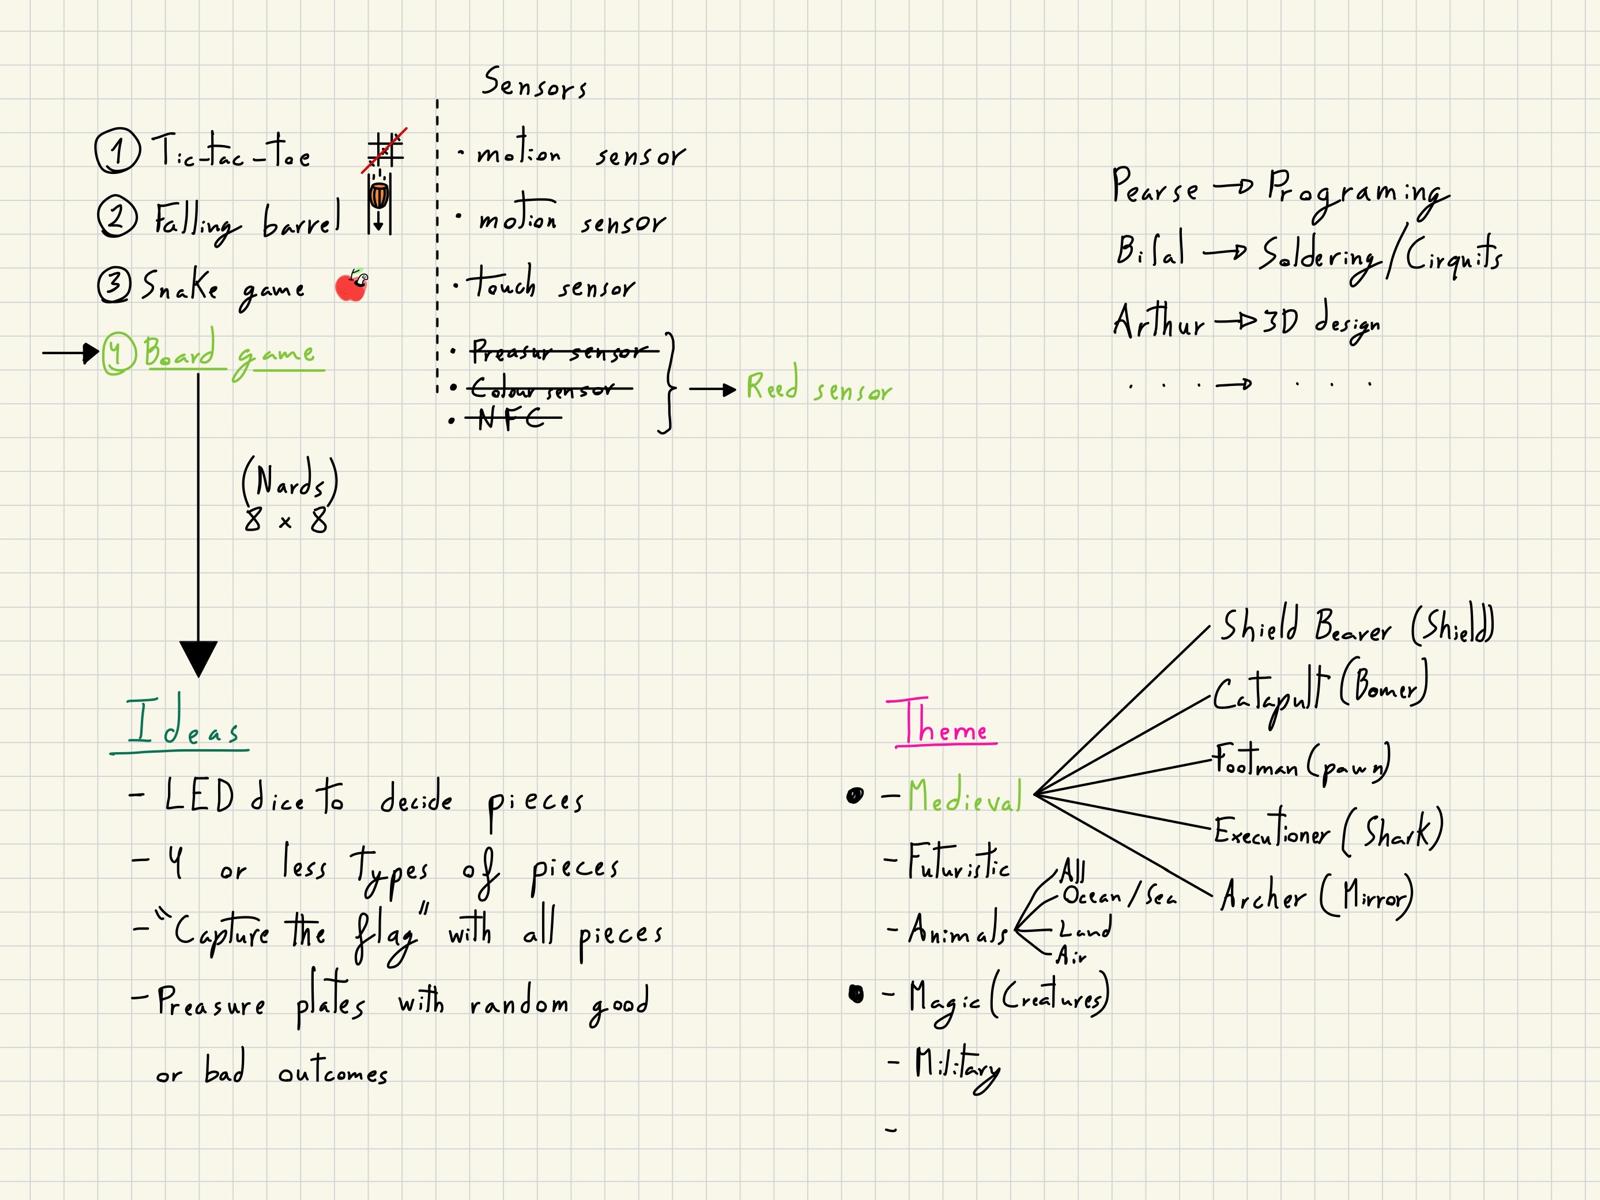 Sensors
① Tic-tac-toe
② Falling barrel
③ Snake game
④ Board game
· motion sensor
· motion sensor
· touch sensor
· Preasur sensor
· Colour sensor
· NFC
Reed sensor
Pearse → Programing
Bilal → Soldering/Cirquits
Arthur → 3D design
. . . → . . . .
(Nards)
8 x 8
Ideas
- LED dice to decide pieces
- 4 or less types of pieces
- "Capture the flag" with all pieces
- Preasure plates with random good
or bad outcomes
Theme
- Medieval
Shield Bearer (Shield)
Catapult (Bomer)
Footman (pawn)
Executioner (Shark)
Archer (Mirror)
- Futuristic
- Animals
All
Ocean/Sea
Land
Air
- Magic (Creatures)
- Military
-